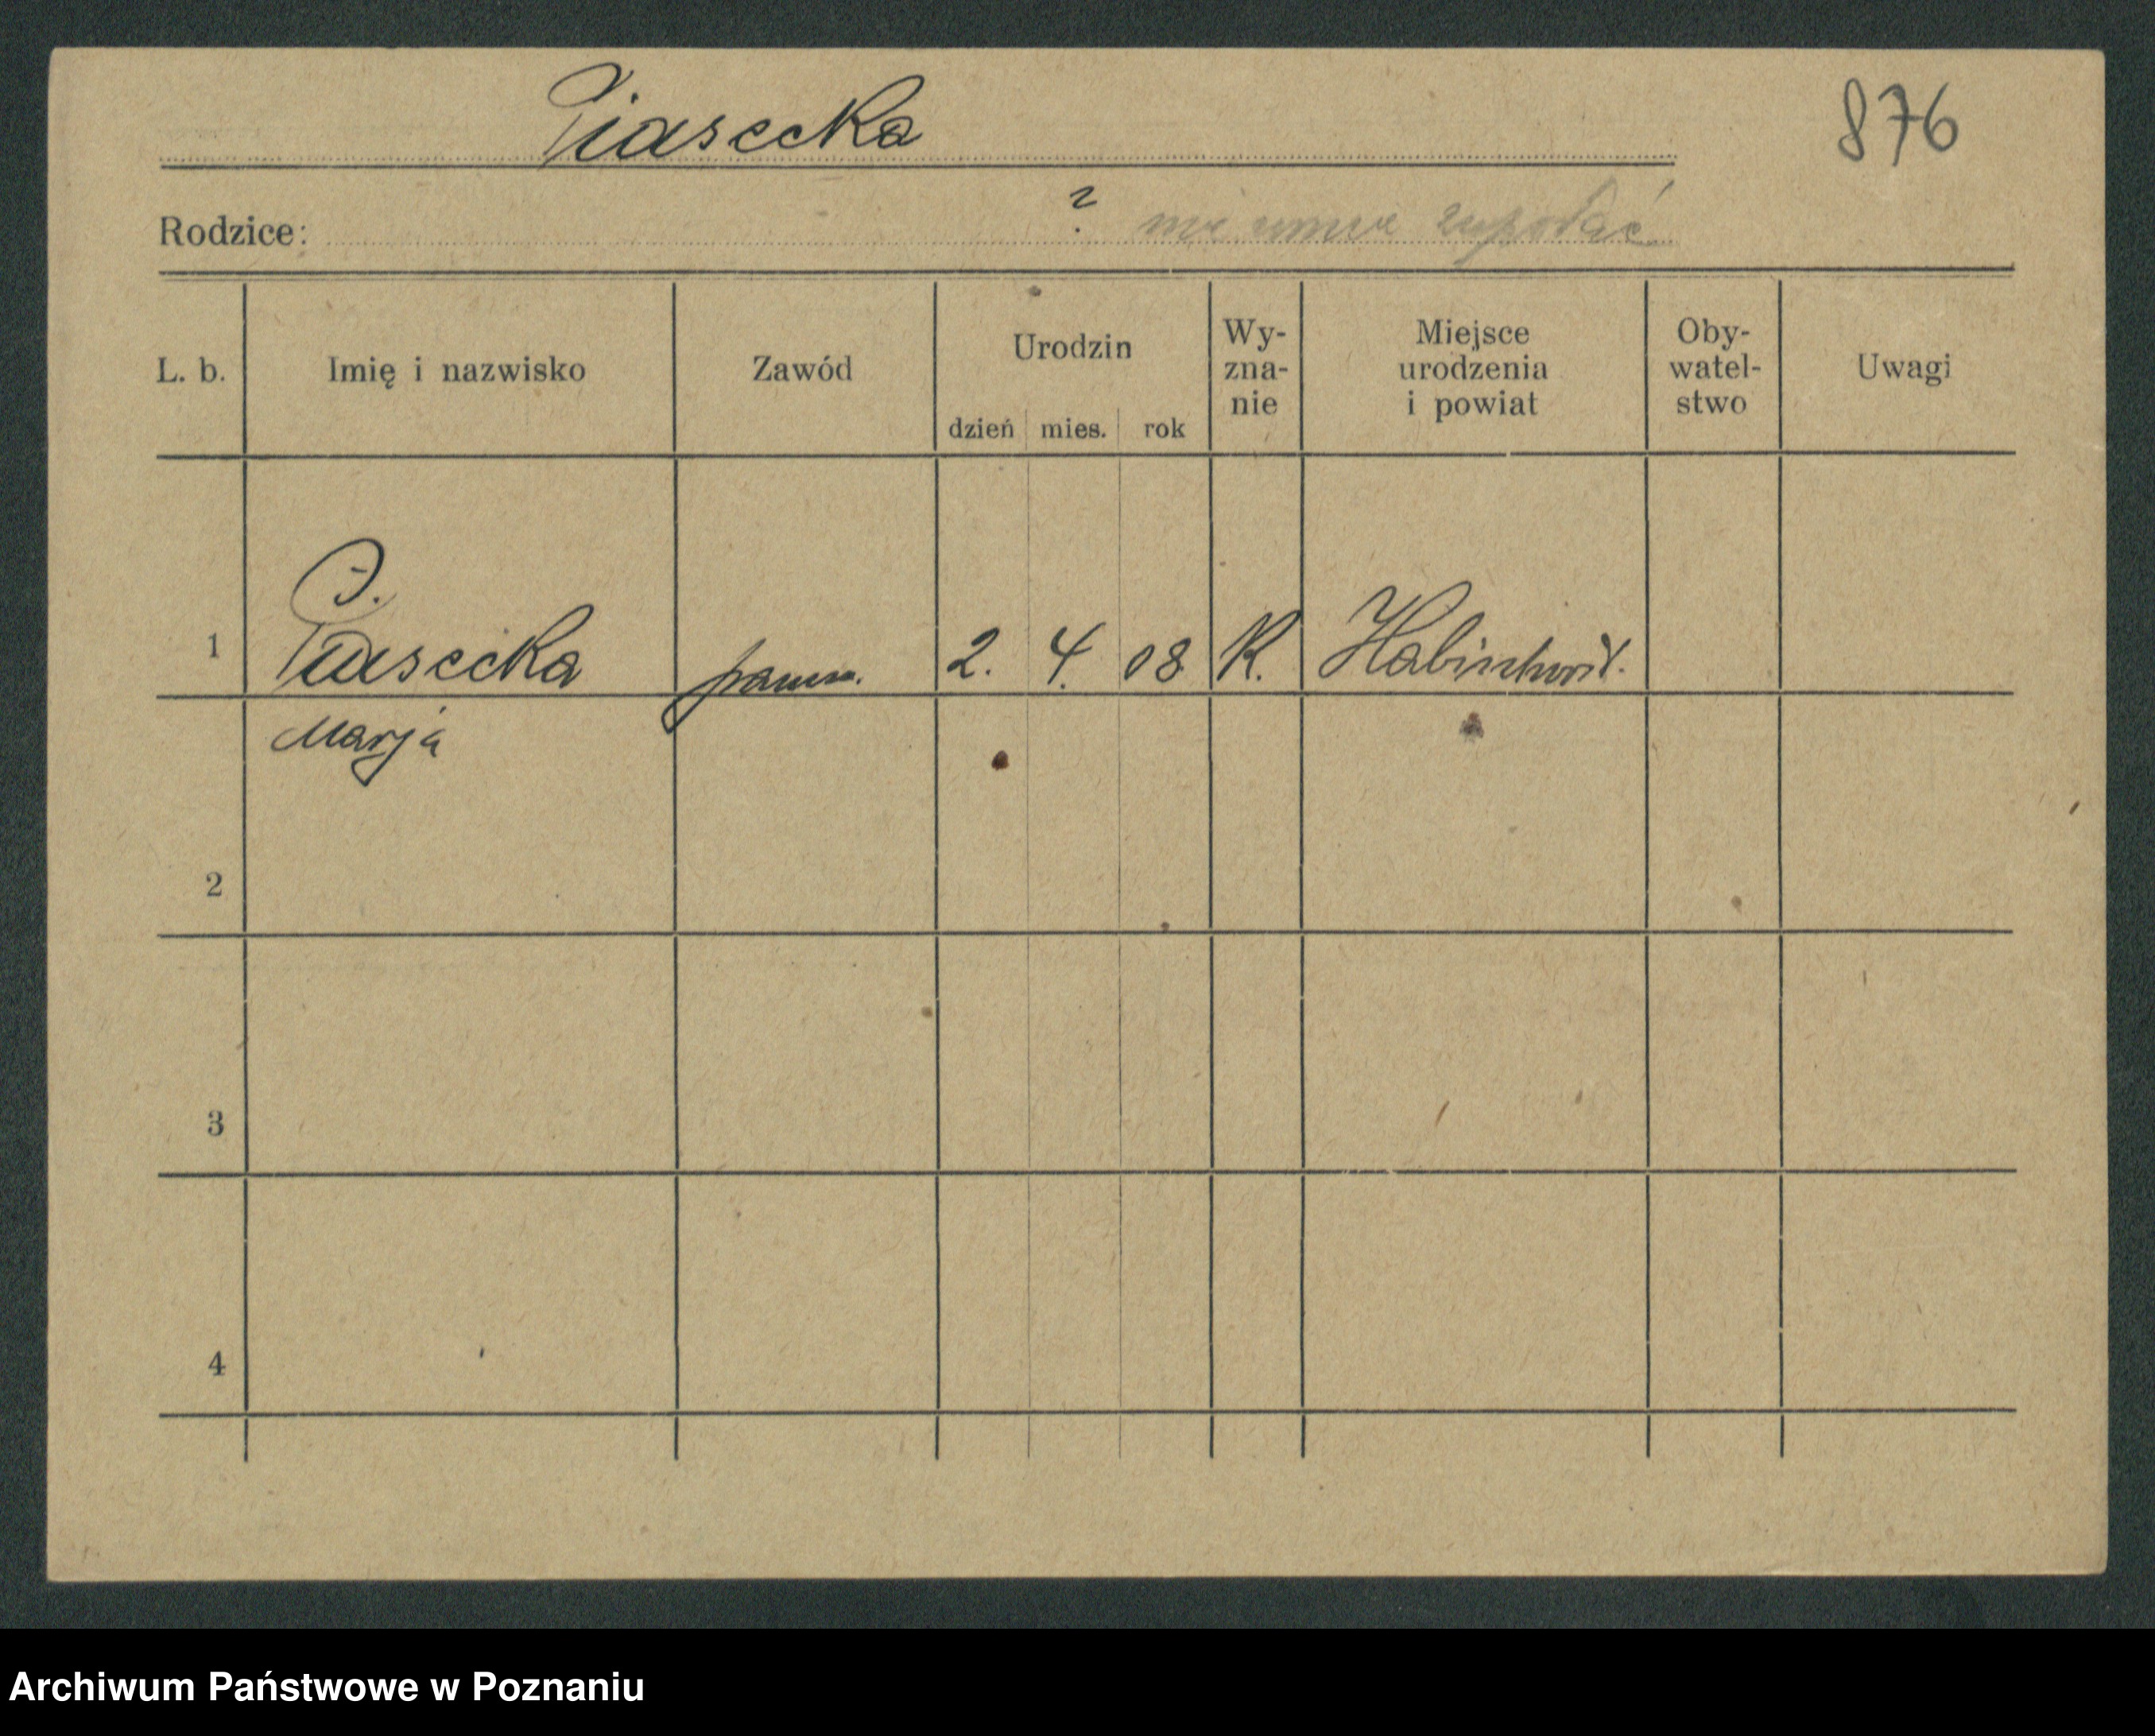 Piasecka
876
Rodzice: ? nie umie zapodać
L. b. Imię i nazwisko Zawód Urodzin dzień mies. rok Wy-zna-nie Miejsce urodzenia i powiat Oby-watel-stwo Uwagi
1 Piasecka 2. 4. 08 K.
Marja
2
3
4
Archiwum Państwowe w Poznaniu